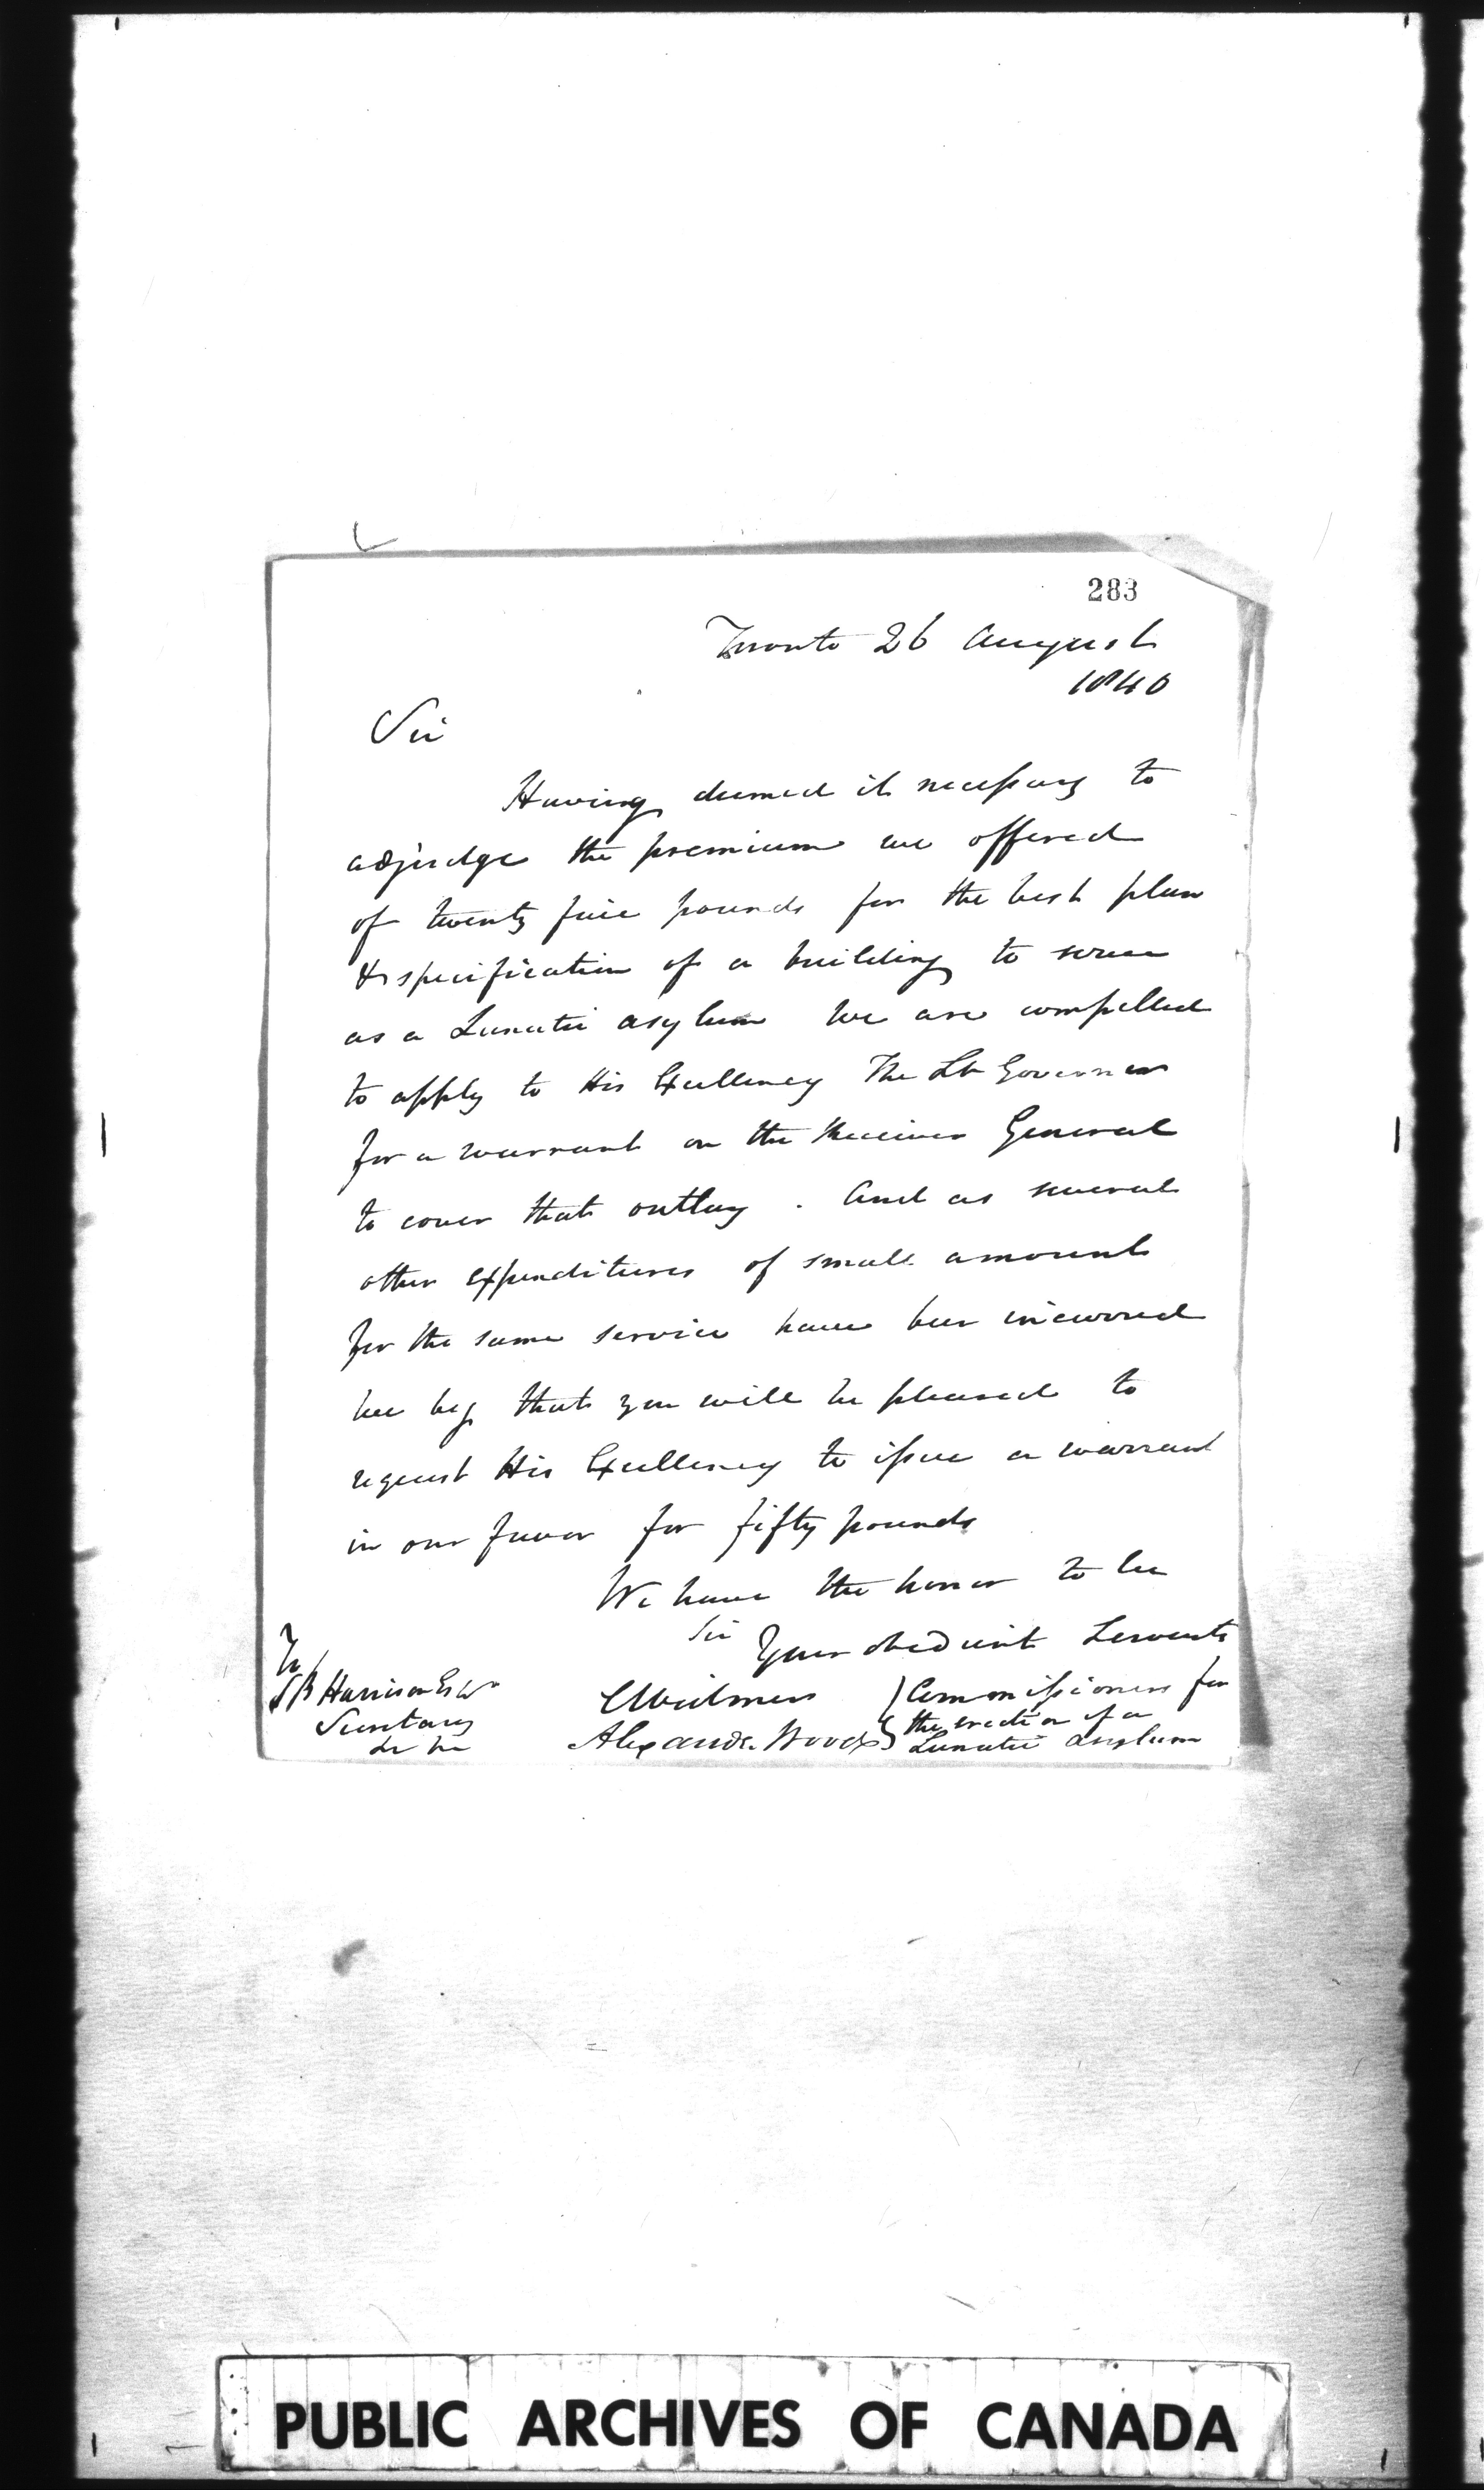 283
Toronto 26 August
1840
Sir
Having deemed it necessary to
adjudge the premium we offered
of twenty five pounds for the best plan
& specification of a building to serve
as a Lunatic asylum we are compelled
to apply to His Excellency The Lt Governor
for a warrant on the Receiver General
to cover that outlay . And as several
other expenditures of small amount
for the same service have been incurred
we beg that you will be pleased to
request His Excellency to issue a warrant
in our favor for fifty pounds
We have the honor to be
Sir
Your obedient Servants
To
S B Harrison Esqr
Secretary
&c &c
C Widmer
Alexandr. Wood
Commissioners for
the erection of a
Lunatic Asylum
PUBLIC ARCHIVES OF CANADA